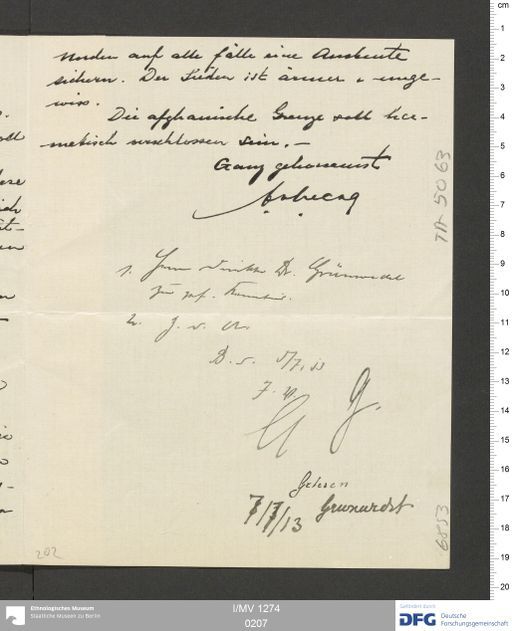 Norden auf alle Fälle eine Ausbeute
sichern. Der Süden ist ärmer u. unge-
wiss.
Die afghanische Grenze soll her-
metisch verschlossen sein. –
Ganz gehorsamst
1. Herrn Direktor Dr. Grünwedel
zur gef. Kenntnis.
2. z. d. A.
B. d. 5/7. 13
G.
Gelesen
7/7/13 Grünwedel
TA 5063
6853
202
Ethnologisches Museum
Staatliche Museen zu Berlin
I/MV 1274
0207
Gefördert durch
DFG Deutsche
Forschungsgemeinschaft
cm
1
2
3
4
5
6
7
8
9
10
11
12
13
14
15
16
17
18
19
20